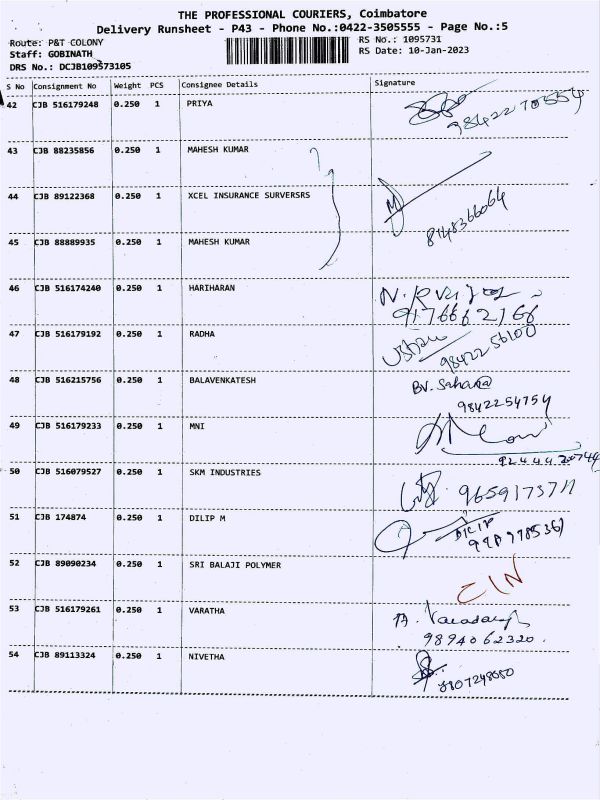 THE PROFESSIONAL COURIERS, Coimbatore
Delivery Runsheet - P43 - Phone No.:0422-3505555 - Page No.:5
Route: P&T COLONY
RS No.: 1095731
Staff: GOBINATH
RS Date: 10-Jan-2023
DRS No.: DCJB109573105
S No Consignment No Weight PCS Consignee Details Signature
42 CJB 516179248 0.250 1 PRIYA
43 CJB 88235856 0.250 1 MAHESH KUMAR
44 CJB 89122368 0.250 1 XCEL INSURANCE SURVERSRS
8148366064
45 CJB 88889935 0.250 1 MAHESH KUMAR
46 CJB 516174240 0.250 1 HARIHARAN
9176662766
47 CJB 516179192 0.250 1 RADHA
98422 56100
48 CJB 516215756 0.250 1 BALAVENKATESH BV. Sahana
9842254754
49 CJB 516179233 0.250 1 MNI
50 CJB 516079527 0.250 1 SKM INDUSTRIES
51 CJB 174874 0.250 1 DILIP M DILIP
52 CJB 89090234 0.250 1 SRI BALAJI POLYMER
53 CJB 516179261 0.250 1 VARATHA
9894062320.
54 CJB 89113324 0.250 1 NIVETHA